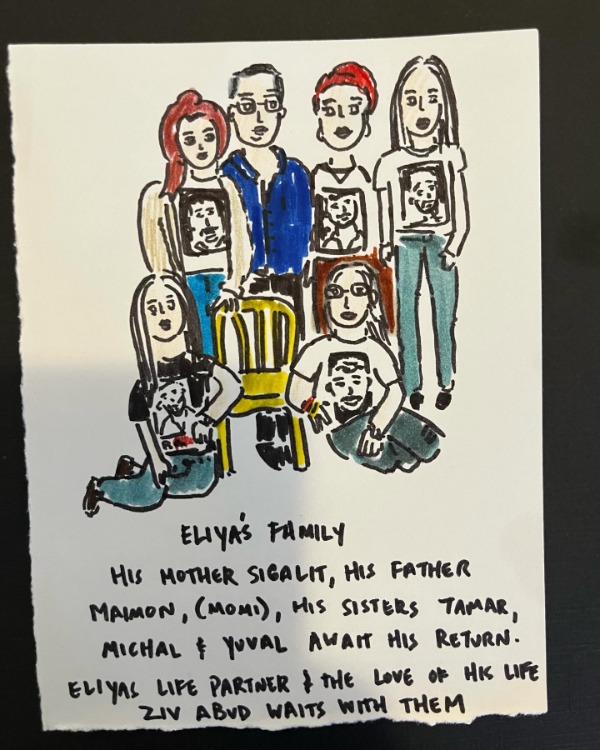 ELIYA'S FAMILY
HIS MOTHER SIGALIT, HIS FATHER
MAIMON, (MOMI), HIS SISTERS TAMAR,
MICHAL & YUVAL AWAIT HIS RETURN.
ELIYAS LIFE PARTNER & THE LOVE OF HIS LIFE
ZIV ABUD WAITS WITH THEM